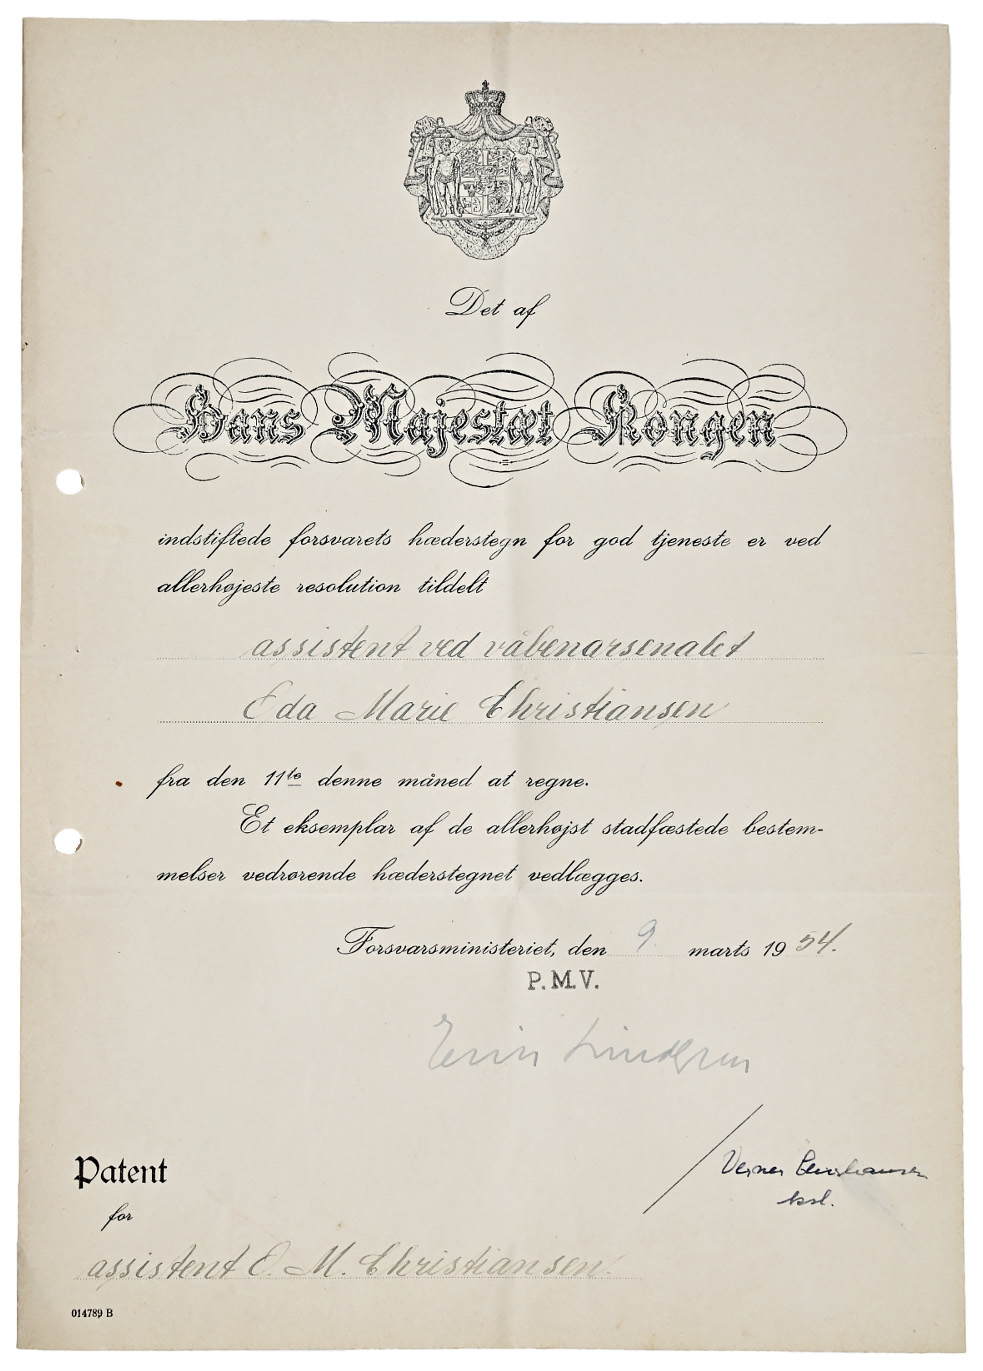 Det af
Hans Majestæt Kongen
indstiftede forsvarets hæderstegn for god tjeneste er ved
allerhøjeste resolution tildelt
assistent ved våbenarsenalet
Eda Marie Christiansen
fra den 11te denne måned at regne.
Et eksemplar af de allerhøjst stadfæstede bestem-
melser vedrørende hæderstegnet vedlægges.
Forsvarsministeriet, den 9. marts 1954.
P.M.V.
Lindgren
Verner
Patent
for
assistent E. M. Christiansen.
014789 B